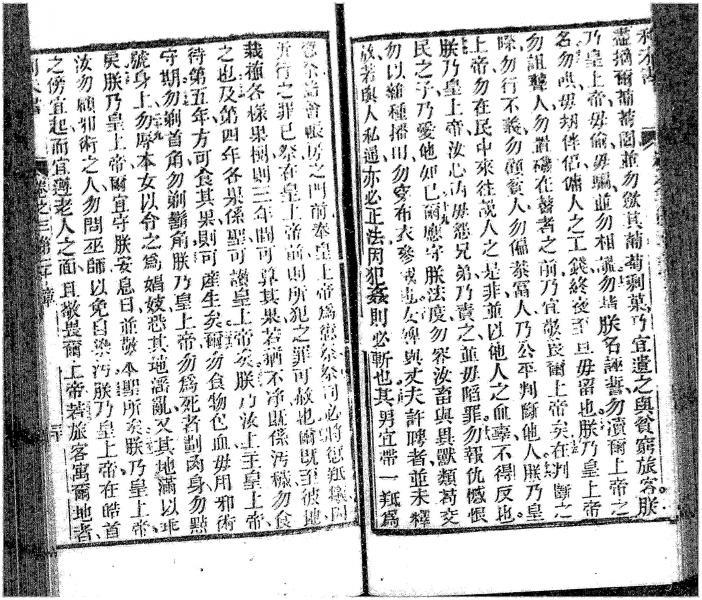 盡摘爾葡萄園並勿飲其葡萄剩菓乃宜遺之與貧窮旅客朕
乃皇上帝毋偷毋騙並勿相謊勿呼朕名誣誓勿瀆爾上帝之
名勿唭毋刼伴侶傭人之工錢終夜至旦毋留也朕乃皇上帝
勿詛聾人勿置礙在瞽者之前乃宜敬畏爾上帝矣在判斷之
際勿行不義勿顧貧人勿偏泰富人乃公平判斷他人朕乃皇
上帝勿在民中來往說人之是非並以他人之血辜不得反也
朕乃皇上帝汝心內毋怨兄弟乃責之並毋陷罪勿報仇憾恨
民之子乃愛他如己爾應守朕法度勿容汝畜與異獸類苟交
勿以雜種播田勿穿布衣參絨也女婢與丈夫許聘者並未釋
放若與人私通亦必正法因犯姦則必斬也其男宜帶一羝為
愆祭當會帳房之門前奉皇上帝為愆祭祭司必將愆羝贖其
所行之罪已祭在皇上帝前則所犯之罪可赦也爾既至彼地
栽種各樣果樹則三年間可算其果若猶不淨既係汚穢勿食
之也及第四年各果係聖可讚皇上帝矣朕乃汝上主皇上帝
待第五年方可食其果則可產生矣爾勿食物包血毋用邪術
守期勿剃首角勿剃鬍角朕乃皇上帝勿為死者劃肉身勿點
號身上勿辱本女以令之為娼妓恐其地淫亂又其地滿以乖
戾朕乃皇上帝爾宜守朕安息日並敬本聖所矣朕乃皇上帝
汝勿顧邪術之人勿問巫師以免自染汚朕乃皇上帝在皓首
之傍宜起而宜遵老人之面且敬畏爾上帝若旅客寓爾地者